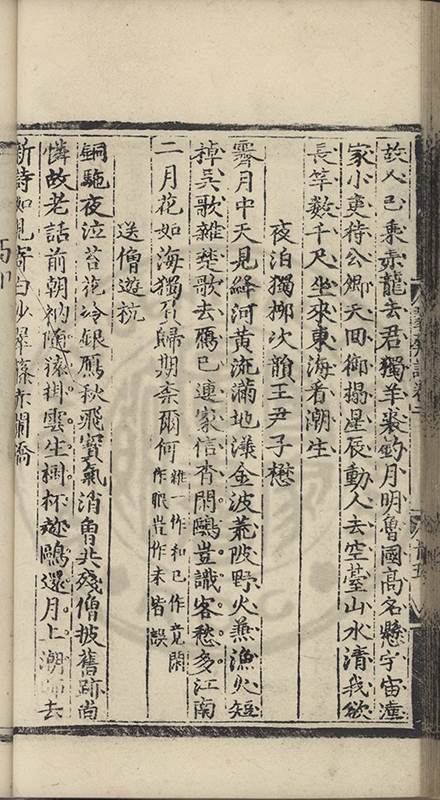 故人已乘赤龍去君獨羊裘釣月明魯國高名懸宇宙漢
家小吏待公卿天回御榻星辰動人去空臺山水清我欲
長竿數千尺坐來東海看潮生
夜泊獨柳次韻王尹子懋
霽月中天見絳河黃流滿地漾金波荒陂野火兼漁火短
棹吳歌雜楚歌去鴈已連家信杳閑鷗豈識客愁多江南
二月花如海獨有歸期柰爾何
雜一作和已作竟閑
作眠豈作未皆誤
送僧遊杭
銅駞夜泣苔花冷銀鴈秋飛寳氣消曾共殘僧披舊跡尚
憐故老話前朝衲隨猿掛雲生榻杯逐鷗還月上潮師去
新詩如見寄白沙翠篠赤闌橋